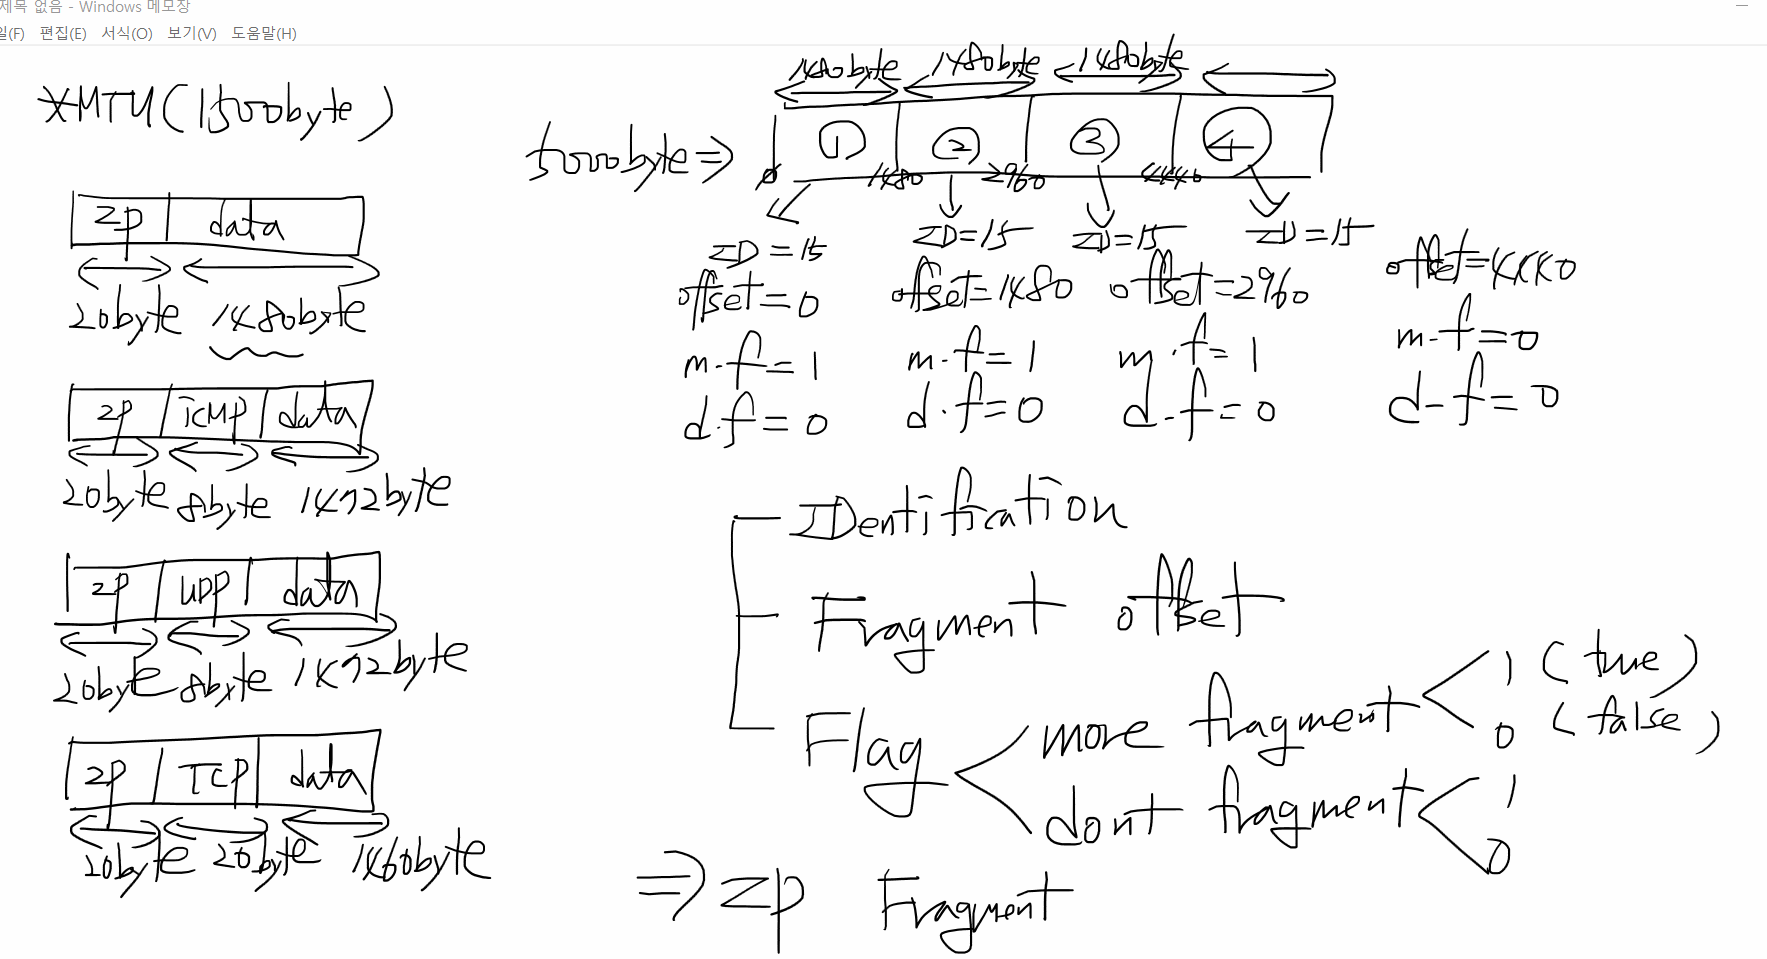 제목 없음 - Windows 메모장
일(F) 편집(E) 서식(O) 보기(V) 도움말(H)
*MTU(1500byte)
IP data
20byte 1480byte
IP ICMP data
20byte 8byte 1472byte
IP UDP data
20byte 8byte 1472byte
IP TCP data
20byte 20byte 1460byte
1480byte 1480byte 1480byte
5000byte⇒ ① ② ③ ④
0 1480 2960 4440
ID=15 ID=15 ID=15 ID=15
offset=0 offset=1480 offset=2960 offset=4440
m.f=1 m.f=1 m.f=1 m-f=0
d.f=0 d.f=0 d-f=0 d-f=0
IDentification
Fragment offset
Flag
more fragment 1 (true)
0 (false)
dont fragment 1
0
⇒ IP Fragment